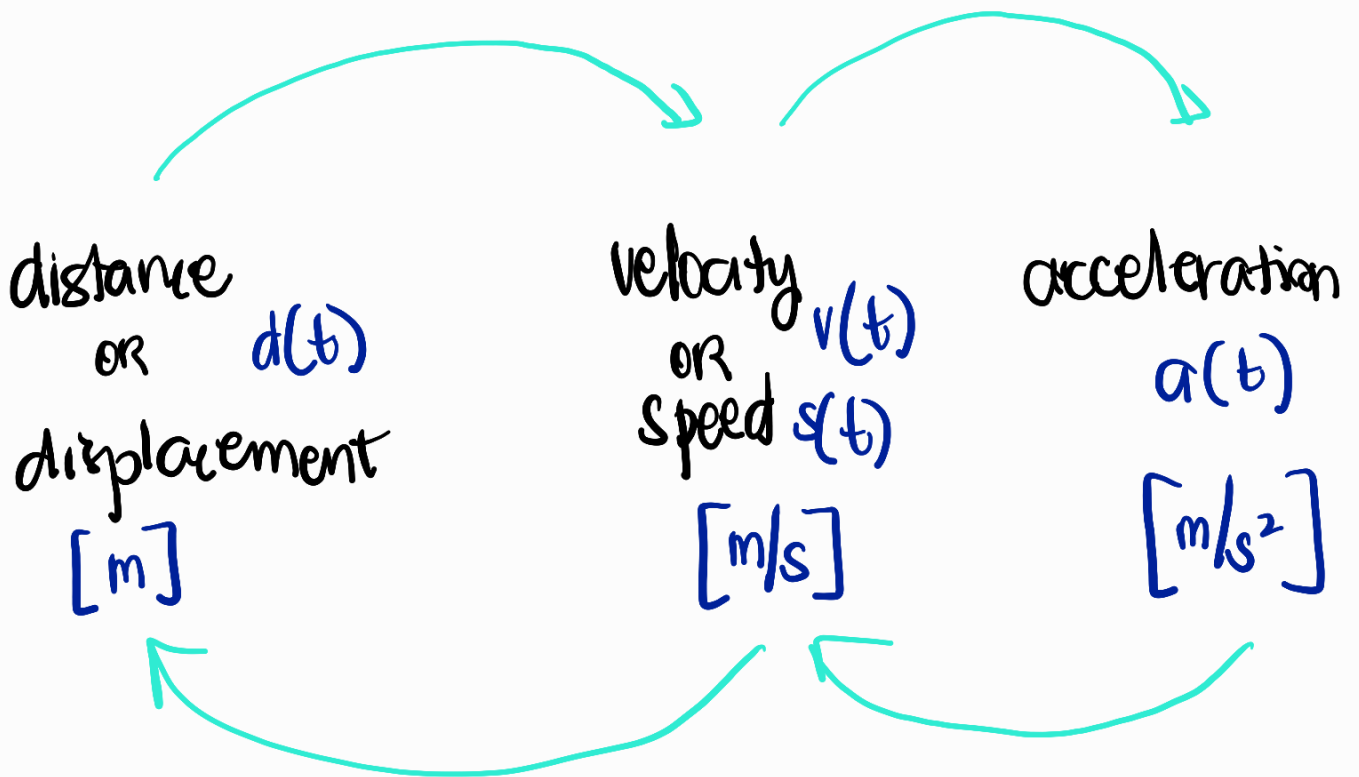 distance
OR d(t)
displacement
[m]
velocity
v(t)
OR
speed s(t)
[m/s]
acceleration
a(t)
[m/s²]